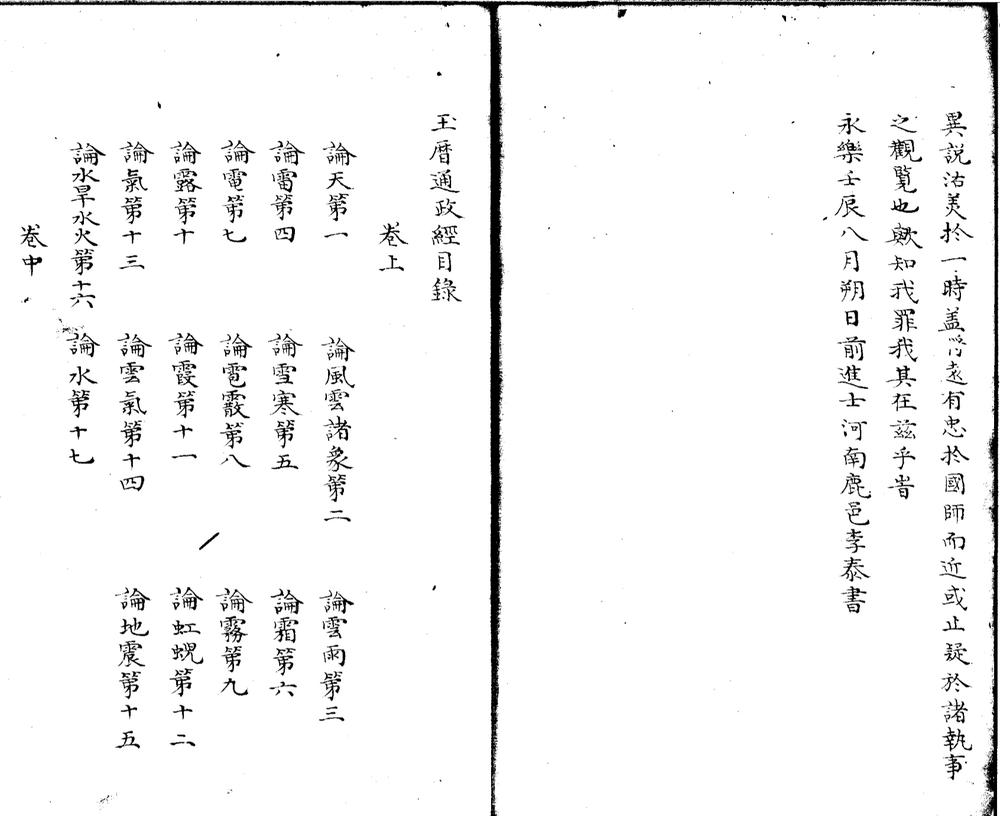 異説沽美於一時盖將遠有忠於國師而近或止疑於諸執事
之觀覽也歟知我罪我其在茲乎時
永樂壬辰八月朔日前進士河南鹿邑李泰書
玉曆通政經目錄
卷上
論天第一　論風雲諸象第二　論雲雨第三
論雷第四　論雪寒第五　論霜第六
論電第七　論雹霰第八　論霧第九
論露第十　論霞第十一　論虹蜺第十二
論氣第十三　論雲氣第十四　論地震第十五
論水旱水火第十六　論水第十七
卷中